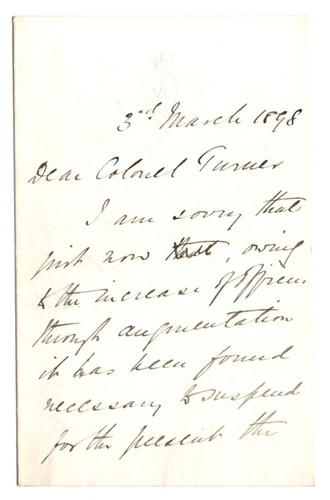 3rd March 1898
Dear Colonel Turner
I am sorry that
just now that, owing
to the increase of officers
through augmentation
it has been found
necessary to suspend
for the present the